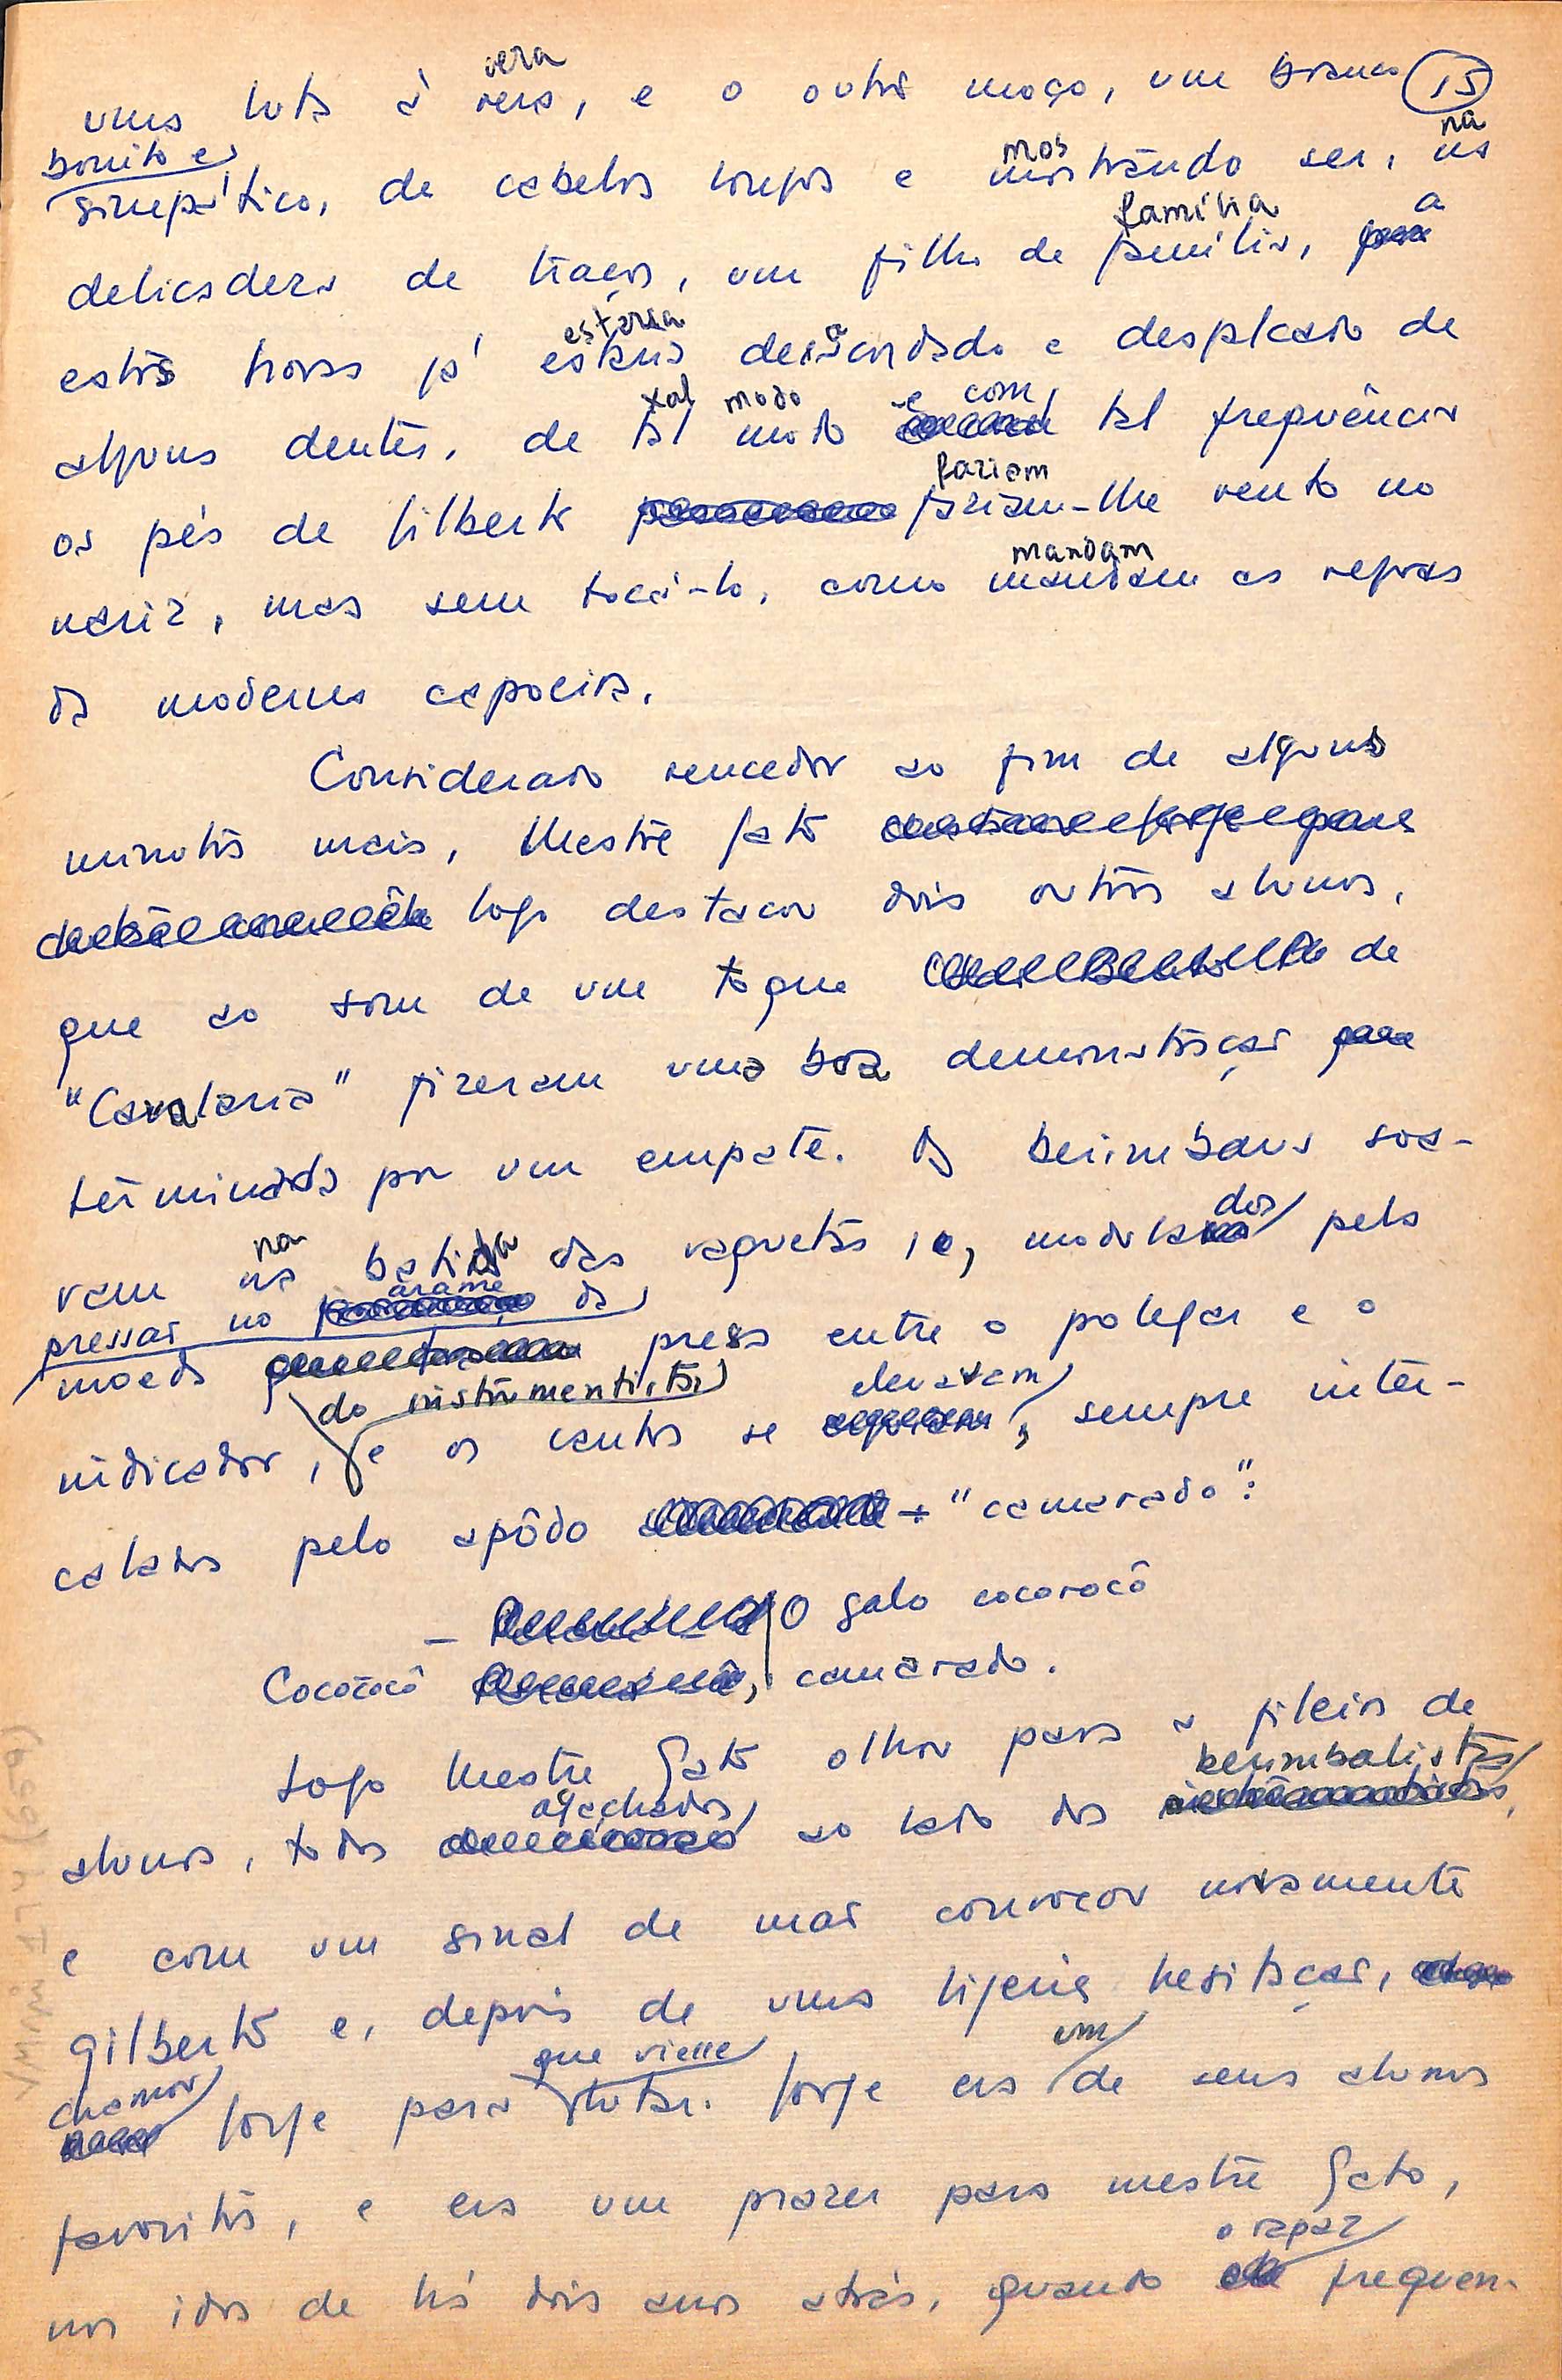 15
vera
uma luta à vera, e o outro moço, um branco
bonito e
mos
na
simpático, de cabelos longos e mostrando ser, na
família
a
delicadeza de traços, um filho de família, para
estaria
estas horas já estaria desacordado e desplcado de
tal modo e com
alguns dentes, de tal modo tal frequência
fariam
os pés de Gilberto faziam-lhe vento no
mandam
nariz, mas sem tocá-lo, como mandam as regras
da moderna capoeira.
Considerado vencedor ao fim de alguns
minutos mais, Mestre Gato
logo destacou dois outros alunos,
que ao som de um toque de
"Cavalaria" fizeram uma boa demonstração
terminada por um empate. Os berimbaus soa-
na
da
dos
vam na batida das vaquetas e, modulados pela
pressão no arame da
moeda presa entre o polegar e o
do instrumentista
elevavam
indicador, e os cantos se , sempre inter-
calados pelo apôdo "camarado":
- O galo cocorocô
Cocorocô , camarado.
Logo Mestre Gato olhou para a fileira de
berimbalistas
agachados
alunos, todos ao lado dos
e com um sinal de mão convocou novamente
Gilberto e, depois de uma ligeira hesitação,
que viesse
um
chamou
Jorge para lutar. Jorge era de seus alunos
favoritos, e era um prazer para mestre Gato,
o rapaz
nos idos de há dois anos atrás, quando ele frequen-